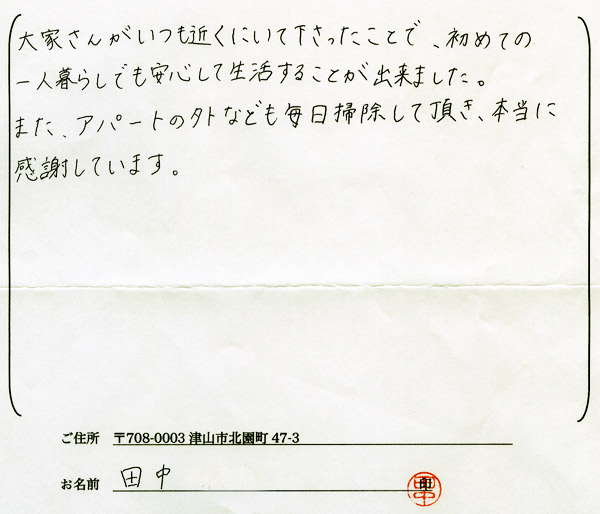 大家さんがいつも近くにいて下さったことで、初めての
一人暮らしでも安心して生活することが出来ました。
また、アパートの外なども毎日掃除して頂き、本当に
感謝しています。
ご住所 〒708-0003 津山市北園町 47-3
お名前 田中 印